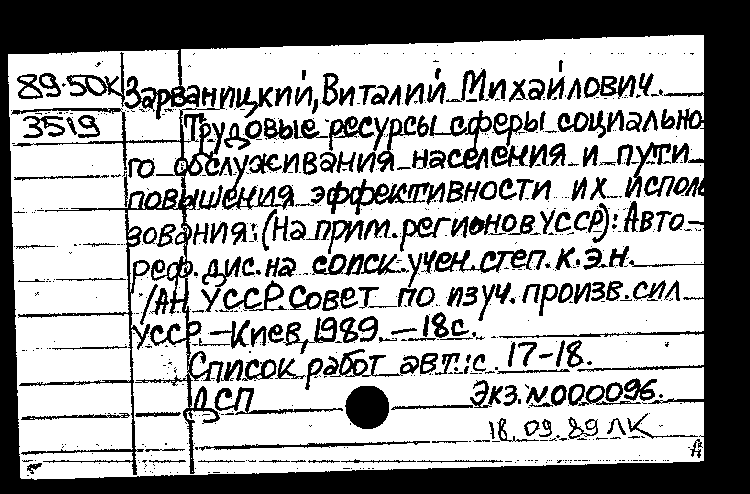 89-50К Зарваницкий, Виталий Михайлович.
3519 Трудовые ресурсы сферы социально
го обслуживания населения и пути
повышения эффективности их исполь
зования: (На прим. регионов УССР): Авто-
реф. дис. на соиск. учен. степ. к.э.н.
/АН УССР. Совет по изуч. произв. сил
УССР. – Киев, 1989. – 18с.
Список работ авт.: с. 17-18.
ДСП Экз. №000096.
18.09.89 ЛК